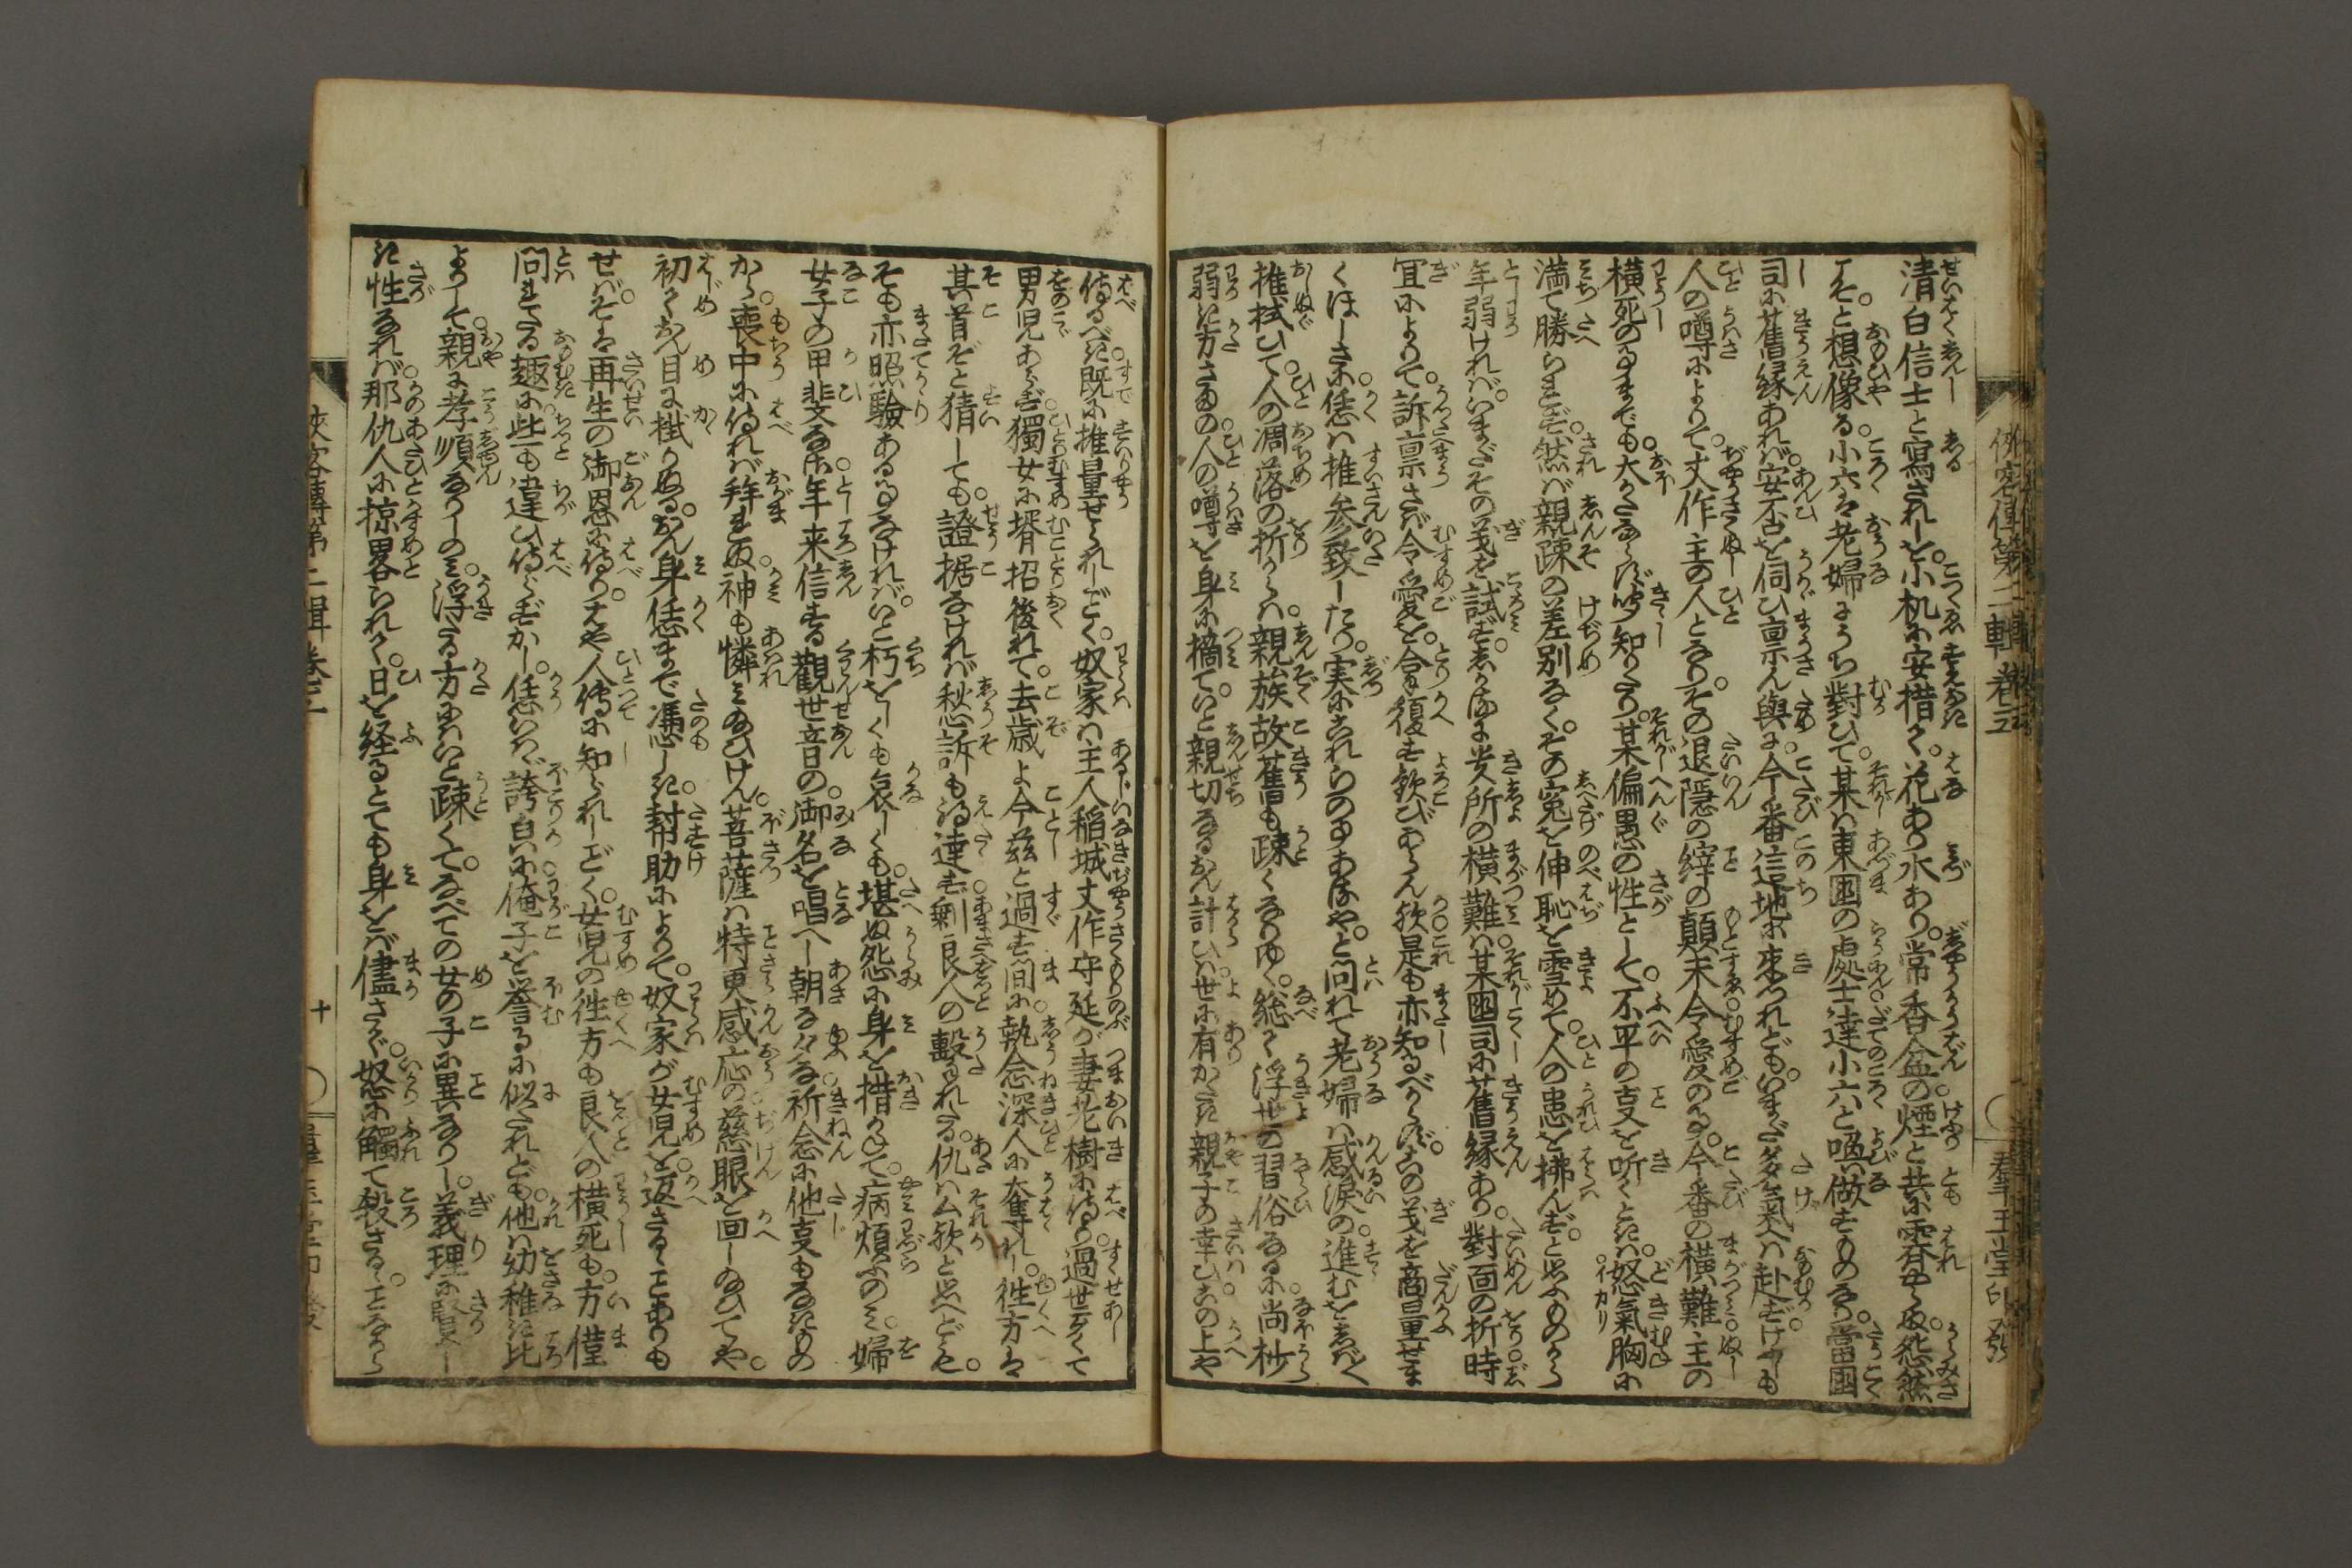 侠客傳第二輯巻五
羣玉堂印發
清白信士と寫されしを。小机に安措て。花あり水あり。常香盆の煙と共に霽やらぬ怨然
こそと想像る。小六は老婦にうち對ひて。某は東國の處士達小六と喚做すものなり。當國
司に舊縁あれば。安否を伺ひ稟さん與に。今番這地に来つれども。いまだ多氣へは赴ず。けふしも
人の噂によりて。丈作主の人となり。その退隠の縡の顛末。令愛の事。今番の横難。主の
横死の事までも。大かたならず聞知りたり。某偏愚の性として。不平の事を听くときは。怒氣胸に
満て勝らまず。然ば親疎の差別なく。その寃を伸恥を雪めて。人の患を拂んず。と思ふものから
年弱ければ。いまだその義を試ず。しかるに貴所の横難は。某國司に舊縁あり。對面の折時
宜によりて。訴禀さば令愛を。合復す歓びあらん歟。是も亦知るべからず。この義を商量せま
くほしさに。恁は推参致したり。実にこれらの事ありや。と問れて老婦は感涙の。進むをしばしば
推拭ひて。人の凋落の折からは。親族故舊も疎くなりゆく。総て浮世の習俗なるに。尚杪
弱き方さまの。人の噂を身に摘て。いと親切なるおん計ひ。世に有がたき親子の幸ひ。この上や
侍るべき。既に推量せられしごとく。奴家は主人稲城丈作守延が妻老樹に侍り。過世悪くて
男児あらず。獨女に壻招後れて。去歳よ今茲と過す間に。執念深人に奪れし。徃方は
其首ぞと猜しても。證据なければ愁訴も得達ず。剰良人の撃れたる。仇は公歟と思へども。
そも亦照驗ある事なければ。いと朽をしくも哀しくも。堪ぬ怨に身を措かねて。病煩ふのみ。婦
女子の甲斐なさに。年来信ずる觀世音の。御名を唱へし朝な々な。祈念に他事もなきもの
から。喪中に侍れば拜まねば。神も憐み給ひけん。菩薩は特更感応の。慈眼を回し給ひてや。
初ておん目に掛りぬる。おん身恁まで憑しき。幇助によりて。奴家が女児を。返さるゝことありも
せば。そは再生の御恩に侍り。はや人傳に知られしごとく。女児の徃方も良人の横死も。方僅
問れたる趣に。些も違ひ侍らずかし。恁いはゞ誇白に。俺子を誉るに似たれども。他は幼稚き比
よりして。親に孝順なりしのみ。浮たる方にはいと疎くて。なべての女の子に異なりし。義理に賢し
き性なれば。那仇人に掠畧られて。日を経るとても身をば儘さず。怒に觸て殺さるゝことなら
侠客傳第二輯巻五
十
羣玉堂印發